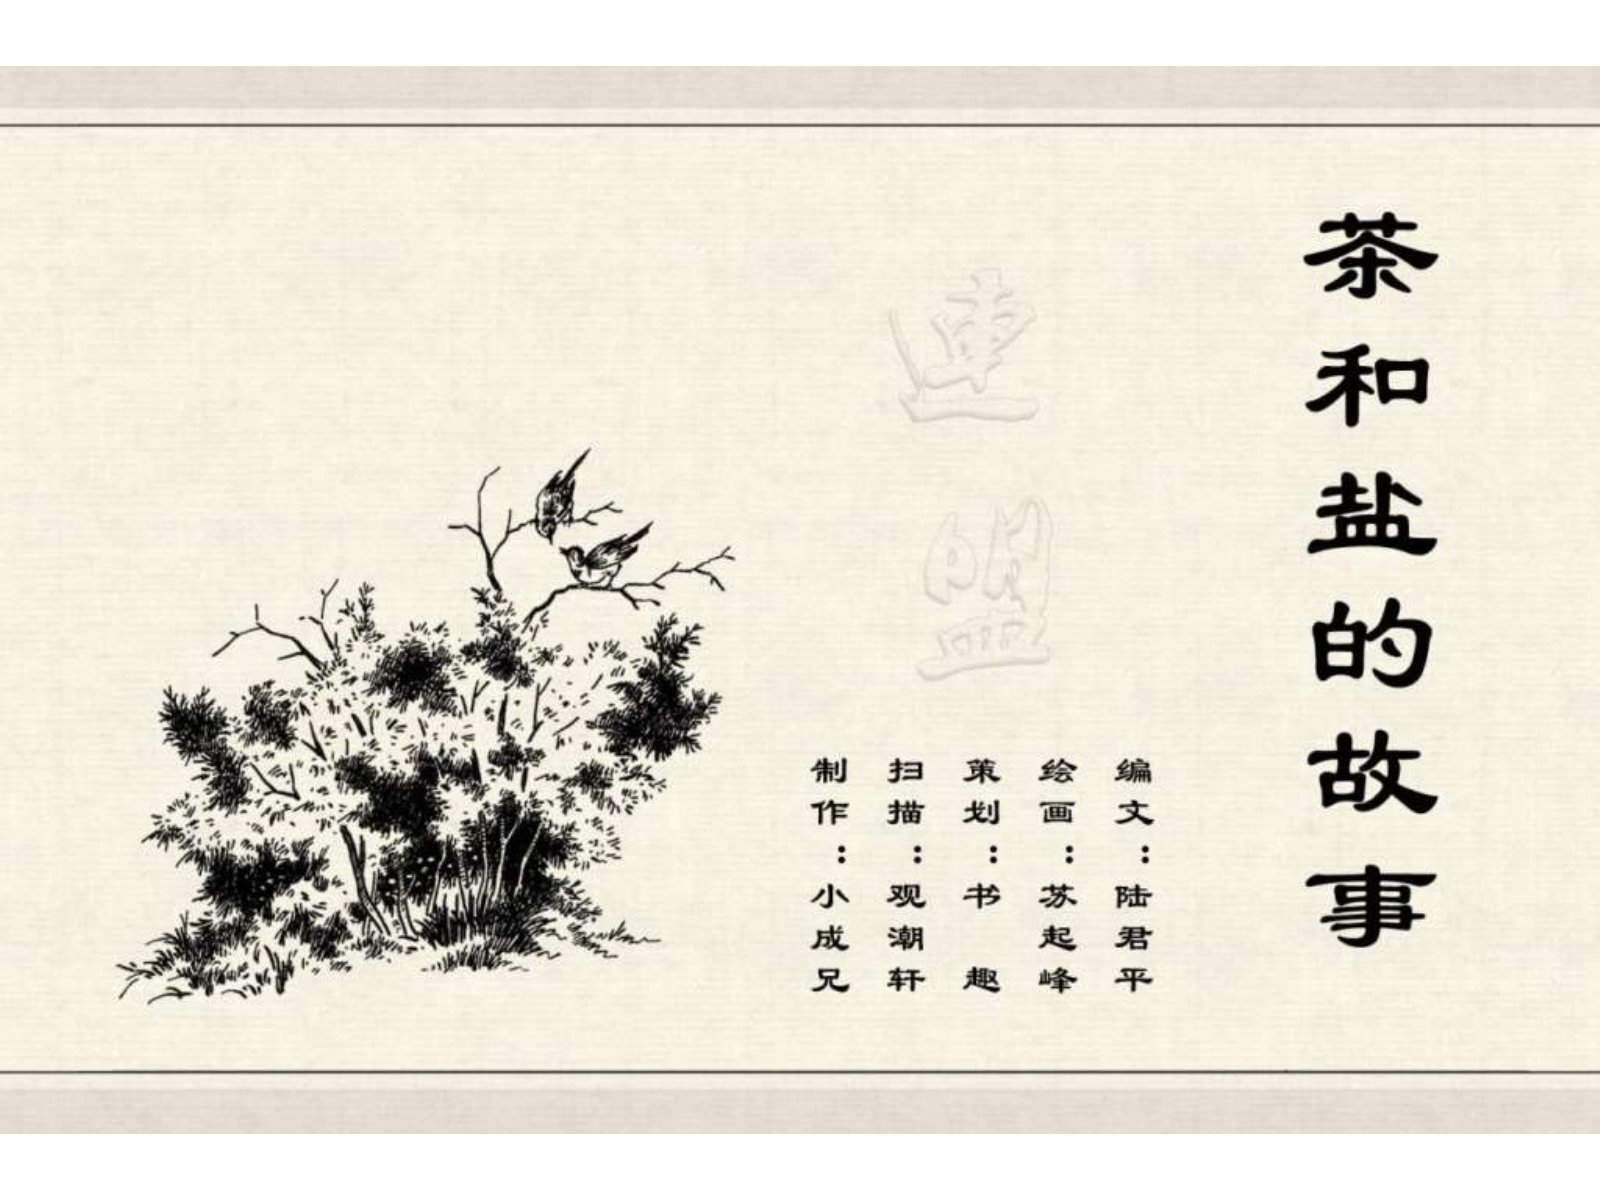 茶和盐的故事
连盟
编文：陆君平
绘画：苏起峰
策划：书趣
扫描：观潮轩
制作：小成兄